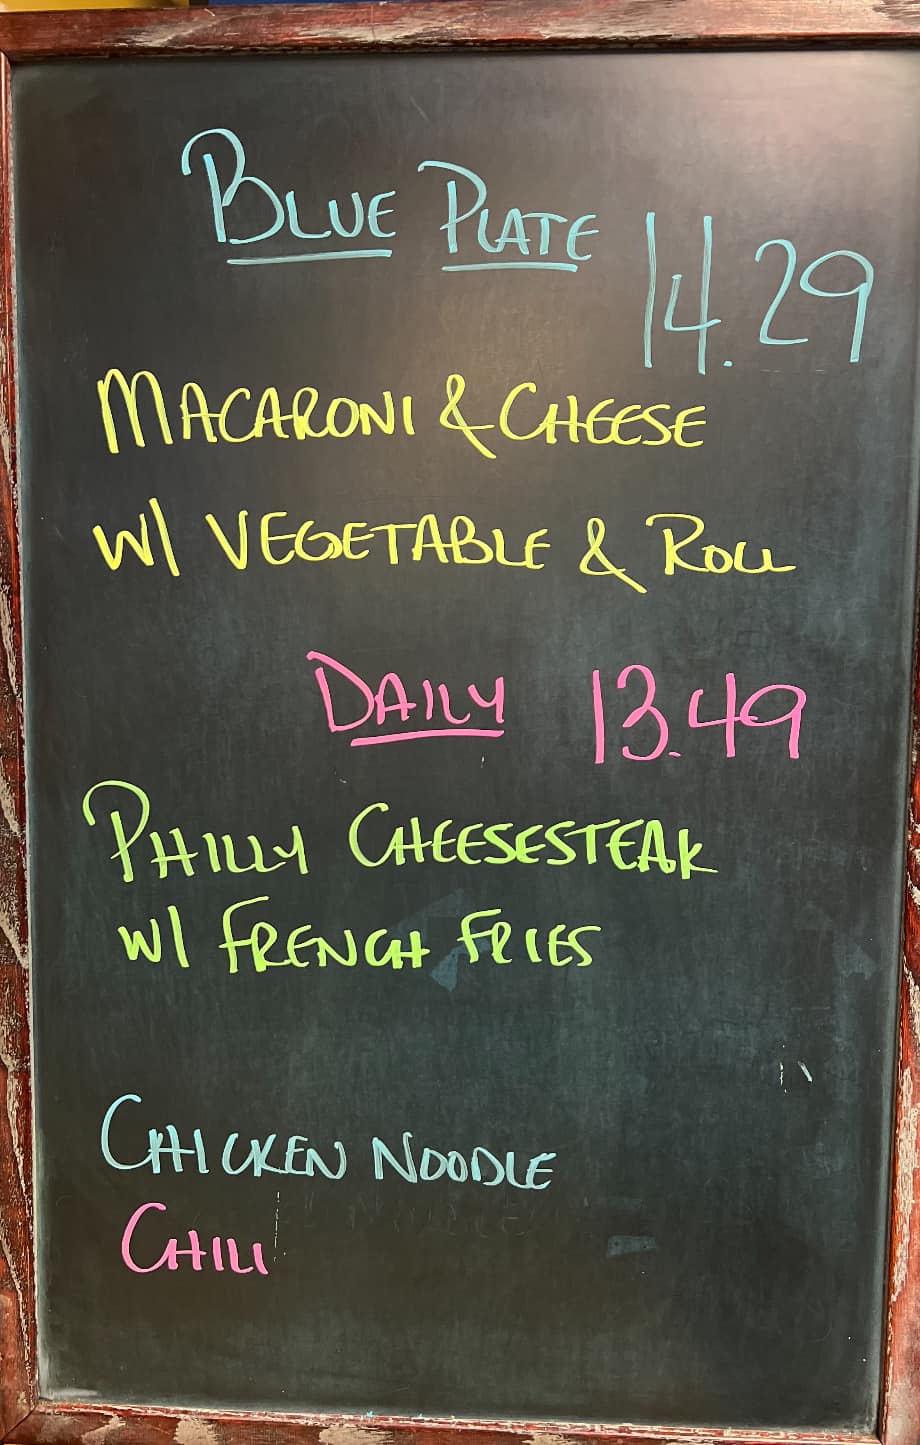 BLUE PLATE 14.29
MACARONI & CHEESE
W/ VEGETABLE & ROLL
DAILY 13.49
PHILLY CHEESESTEAK
W/ FRENCH FRIES
CHICKEN NOODLE
CHILI